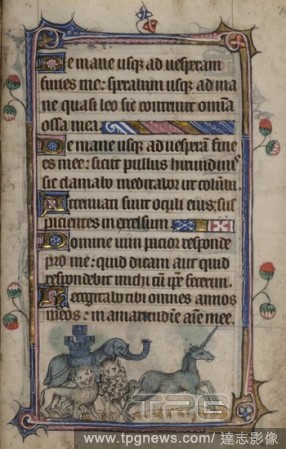 De mane usq; ad uesperam
finies me: sperabam usq; ad ma
ne quasi leo sic contriuit omnia
ossa mea.
De mane usq; ad uesperā fini
es mee: sicut pullus hirundinis
sic clamabo meditabor ut columb
Attenuati sunt oculi eius sus
picientes in excelsum.
Domine uim pacior responde
pro me: quid dicam aut quid
respondebit michi cū ipse fecerim.
Recogitabo tibi omnes annos
meos: in amaritudine anime mee.
TPG
www.tpgnews.com / 達志影像